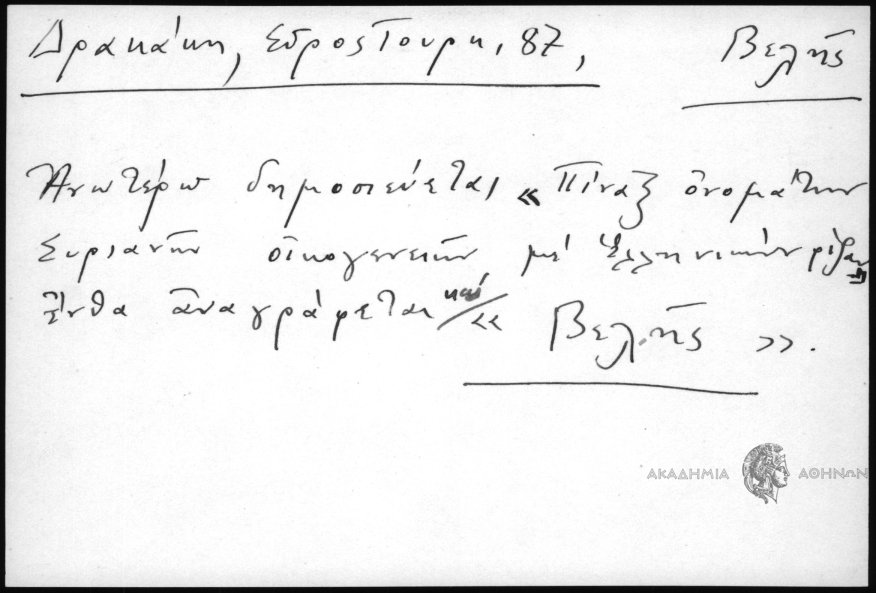 Δρακάκη, Σῦρος Τουρκ, 87, Βελῆς
Ἀνωτέρω δημοσιεύεται «Πίναξ ὀνομάτων
Συριανῶν οἰκογενειῶν μέ Ἑλληνικήν ρίζαν»
ἔνθα ἀναγράφεται καί «Βελῆς».
ΑΚΑΔΗΜΙΑ ΑΘΗΝΩΝ